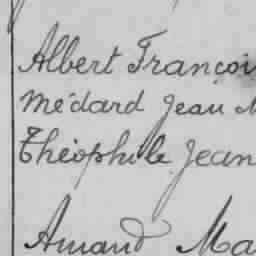 Albert François
Médard Jean M
Théophile Jean
Amand Ma